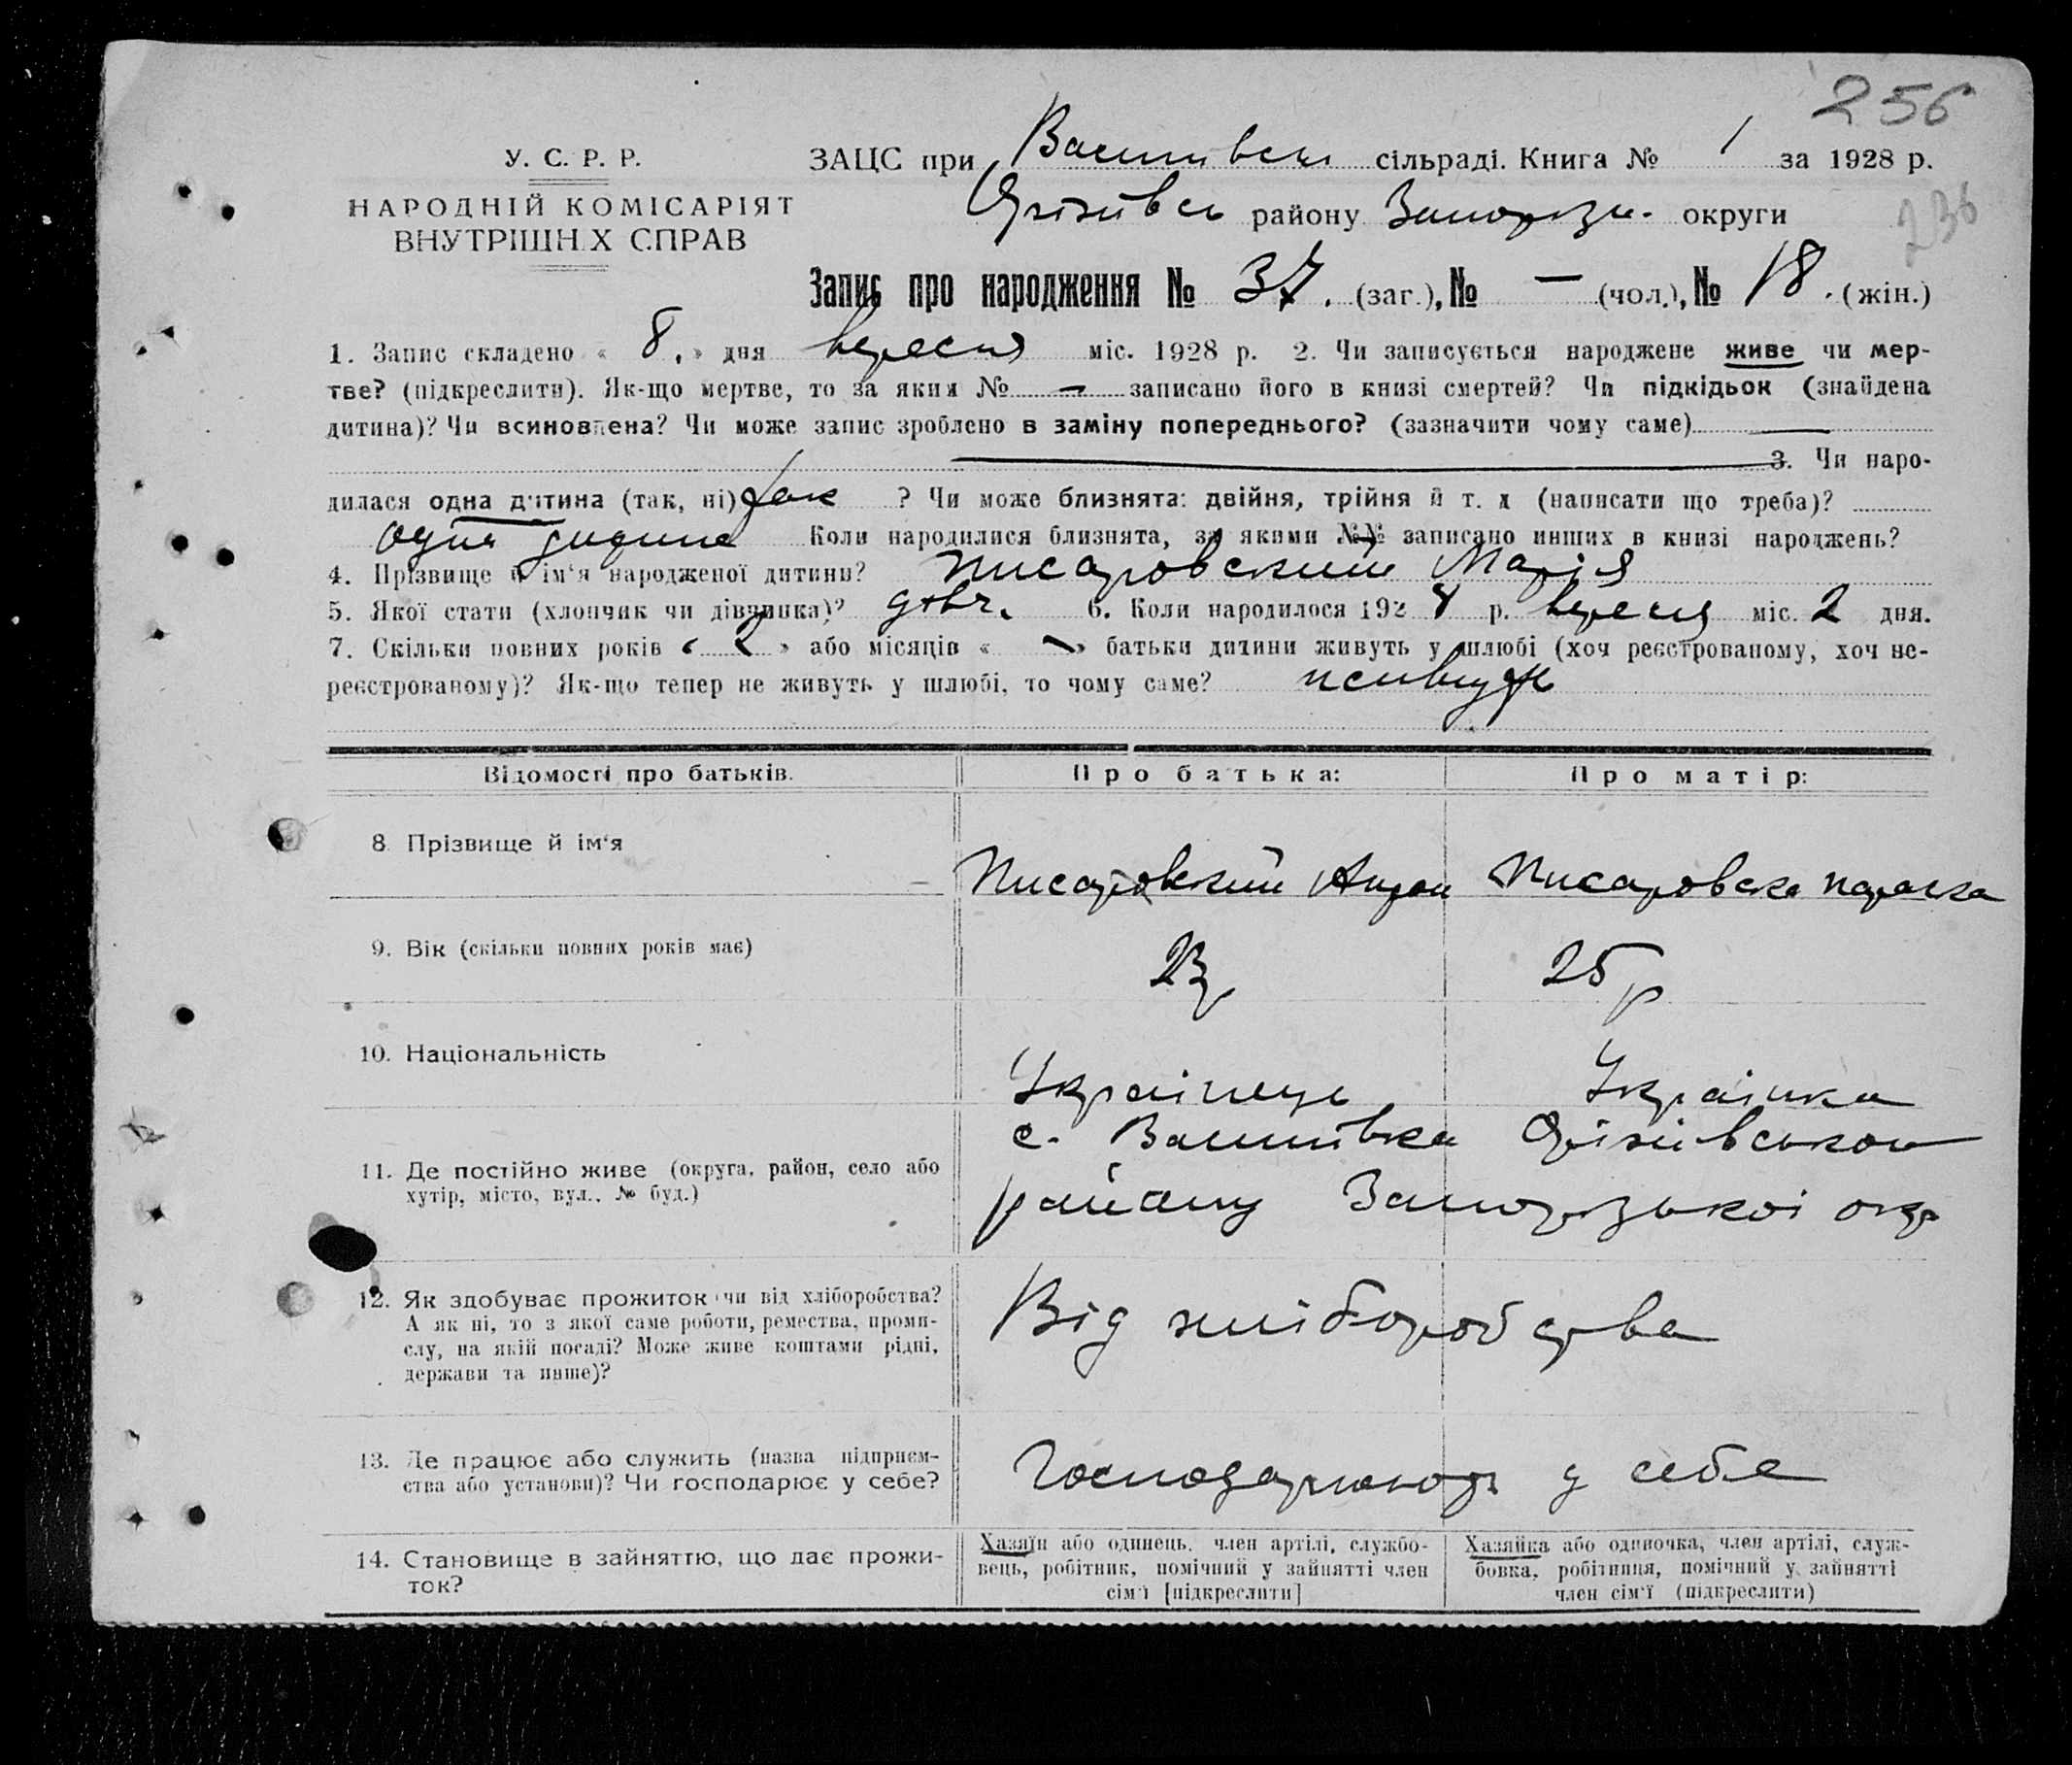 256
У. С. Р. Р.
НАРОДНІЙ КОМІСАРІЯТ
ВНУТРІШН.Х СПРАВ
ЗАЦС при сільраді. Книга № 1 за 1928 р.
району округи
236
Запис про народження № 37. (заг.), № — (чол.), № 18. (жін.)
1. Запис складено « 8. » дня вересня міс. 1928 р. 2. Чи записується народжене живе чи мер-
тве? (підкреслити). Як-що мертве, то за яким № — записано його в книзі смертей? Чи підкідьок (знайдена
дитина)? Чи всиновлена? Чи може запис зроблено в заміну попереднього? (зазначити чому саме) —
3. Чи наро-
дилася одна дитина (так, ні) так ? Чи може близнята: двійня, трійня й т. д (написати що треба)?
одна дитина Коли народилися близнята, за якими №№ записано инших в книзі народжень?
4. Прізвище й ім'я народженої дитини? Писаровский Марія
5. Якої стати (хлопчик чи дівчинка)? дівч. 6. Коли народилося 1928 р. вересня міс. 2 дня.
7. Скільки повних років « 2 » або місяців « — » батьки дитини живуть у шлюбі (хоч реєстрованому, хоч не-
реєстрованому)? Як-що тепер не живуть у шлюбі, то чому саме?
Відомості про батьків. Про батька: Про матір:
8. Прізвище й ім'я Писаровский Писаровска
9. Вік (скільки повних років має) 23р 25р
10. Національність Українець Українка
11. Де постійно живе (округа, район, село або
хутір, місто, вул., № буд.)
с.
району Запорізькоі окр
12. Як здобуває прожиток чи від хліборобства?
А як ні, то з якої саме роботи, ремества, проми-
слу, на якій посаді? Може живе коштами рідні,
держави та инше)?
Від хліборобства
13. Де працює або служить (назва підприєм-
ства або установи)? Чи господарює у себе?
Господарюють у себе
14. Становище в зайняттю, що дає прожи-
ток?
Хазяїн або одинець, член артілі, службо-
вець, робітник, помічний у зайнятті член
сім'ї [підкреслити]
Хазяйка або одиночка, член артілі, служ-
бовка, робітниця, помічний у зайнятті
член сім'ї (підкреслити)